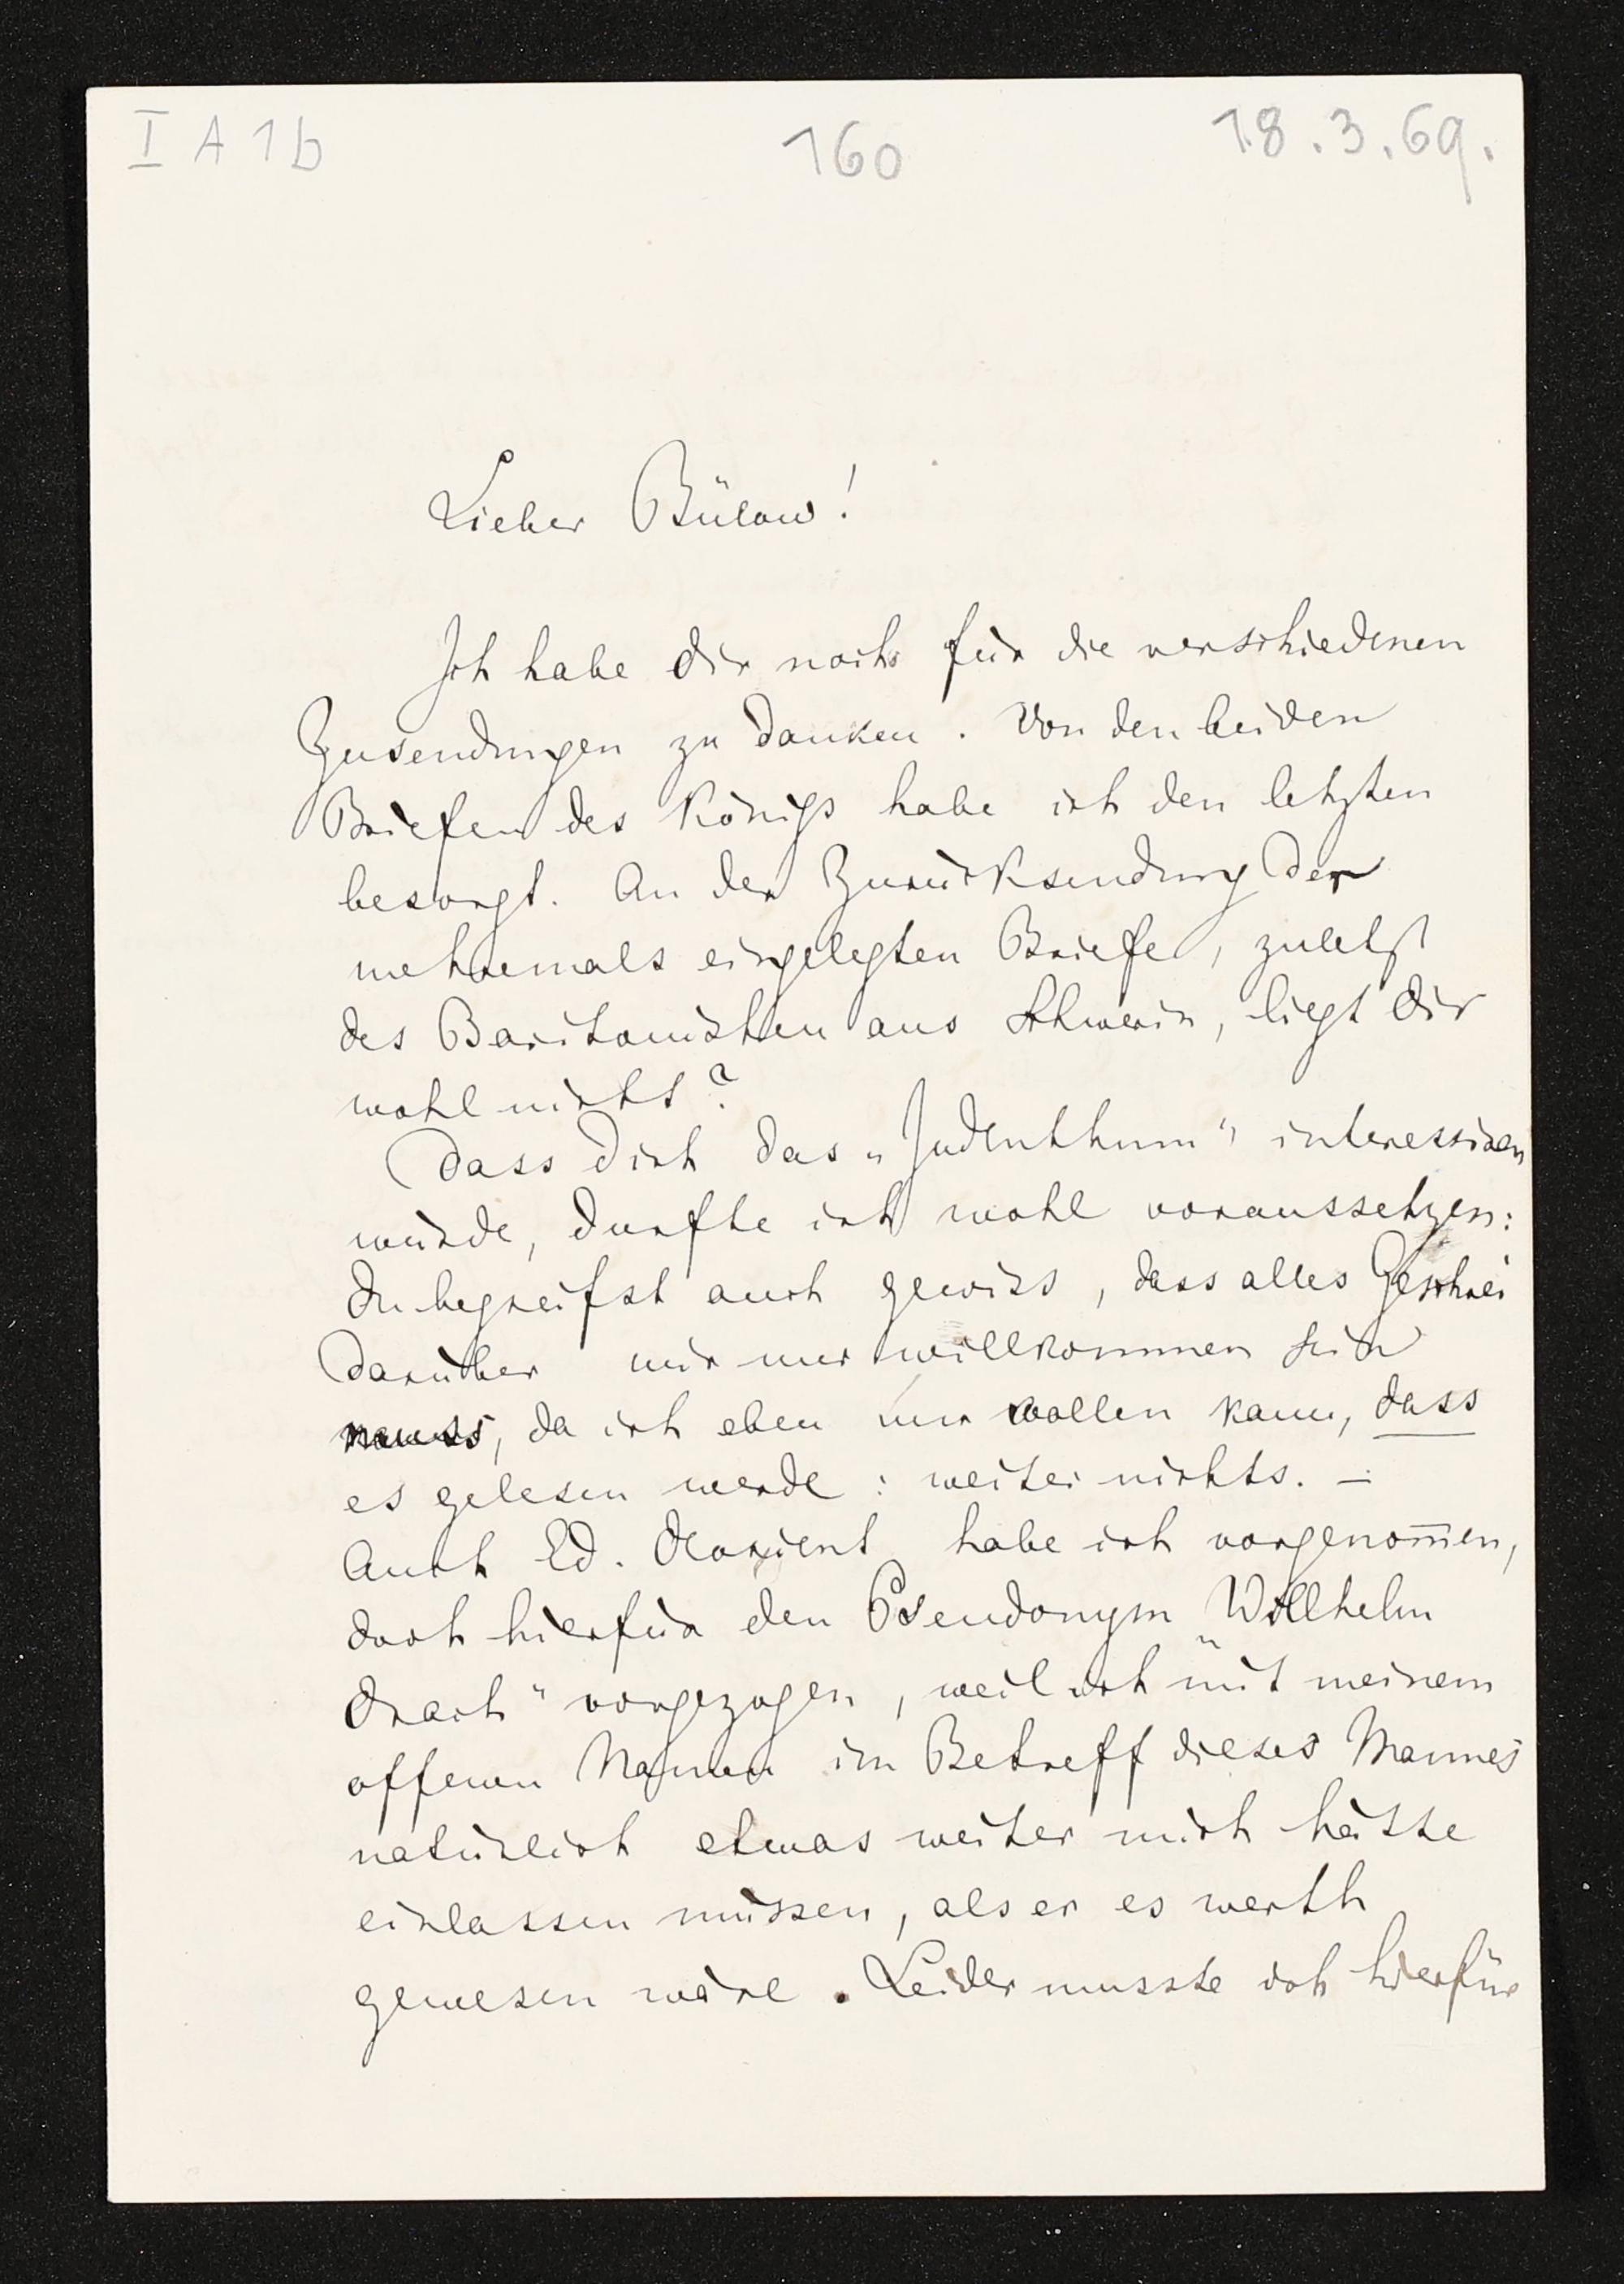 I A 1b 160 18.3.69.
Lieber Bülow!
Ich habe dir noch für die verschiedenen
Zusendungen zu danken. Von den beiden
Briefen des Königs habe ich den letzten
besorgt. An der Zurücksendung der
mehremals eingelegten Briefe, zuletzt
des Baritonisten aus Schwerin, liegt dir
wohl nicht?
Dass dich das „Judenthum“ interessiren
würde, durfte ich wohl voraussetzen:
du begreifst auch gewiss, dass alles Geschrei
darüber mir nur willkommen sein
muss, da ich eben nur wollen kann, dass
es gelesen werde: weiter nichts. –
Auch Ed. Devrient habe ich vorgenom̅en,
doch hierfür den Pseudonym „Willhelm
Drach“ vorgezogen, weil ich mit meinem
offenen Namen im Betreff dieses Mannes
natürlich etwas weiter mich hätte
einlassen müssen, als er es werth
gewesen wäre. Leider musste ich hierfür